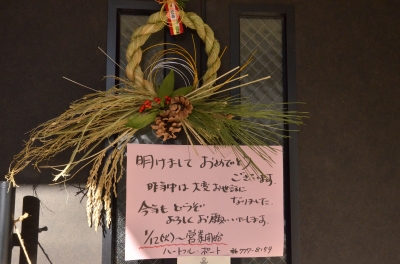 明けまして おめでとう
ございます。
昨年中は 大変 お世話に
なりました。
今年も どうぞ
よろしく お願いいたします。
1/12(火)〜営業開始
ハートフル ポート
☎777-8159